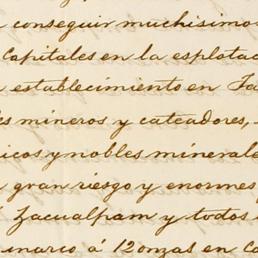 conseguir muchisimo
Capitales en la esplota
establecimiento en
mineros y cateadores,
icos y nobles minerale
gran riesgo y enormes
Zacualpam y todos
marco á 12 onzas en